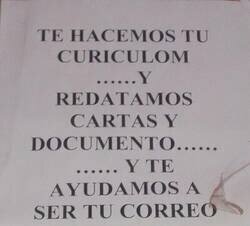 TE HACEMOS TU
CURICULOM
......Y
REDATAMOS
CARTAS Y
DOCUMENTO......
...... Y TE
AYUDAMOS A
SER TU CORREO